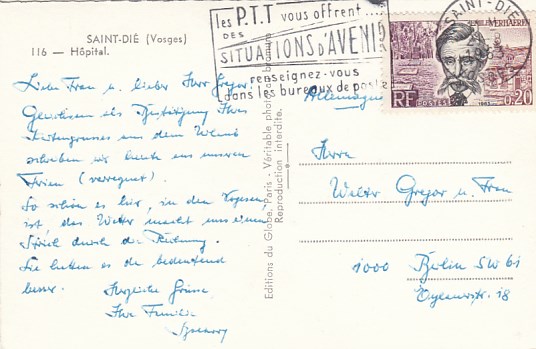 SAINT-DIÉ (Vosges)
116 — Hôpital.
les P.T.T vous offrent
DES
SITUATIONS D'AVENIR
renseignez-vous
dans les bureaux de poste
SAINT-DIÉ
EMILE VERHAEREN
RF
POSTES
0,20
Liebe Frau u. lieber Herr Gregor,
Gewissermaßen als Bestätigung Ihres
Kartengrusses aus dem
schreiben wir heute aus unseren
Ferien (verregnet).
So schön es hier, in den Vogesen
ist, das Wetter macht uns einen
Strich durch die Rechnung.
Sie hatten es da bedeutend
besser.
Herzliche Grüsse
Ihre Familie
Editions du Globe, Paris - Véritable photo au bromure
Reproduction interdite.
Allemagne
Herrn
Walter Gregor u. Frau
1000 Berlin SW 61
18